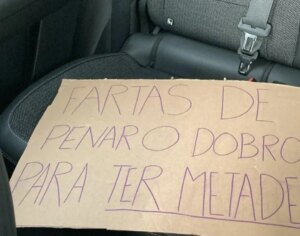 FARTAS DE
PENAR O DOBRO
PARA TER METADE